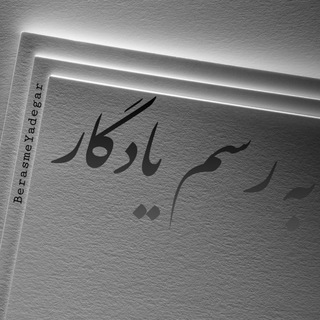 به رسم یادگار
BerasmeYadegar